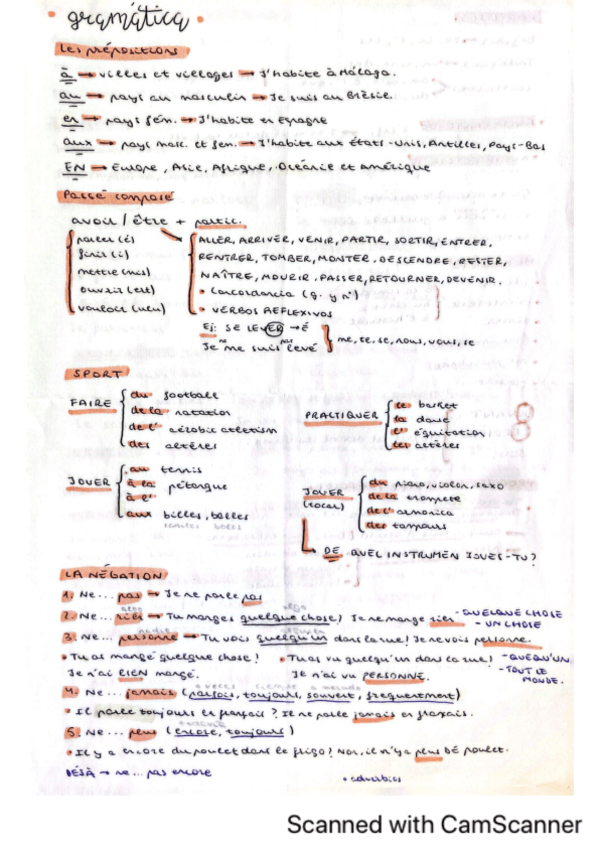 gramática
Les prépositions
à → villes et villages → J'habite à Málaga.
au → pays au masculin → Je suis au Brésil.
en → pays fém. → J'habite en Espagne
aux → pays masc. et fem. → J'habite aux États-Unis, Antilles, Pays-Bas
EN → Europe, Asie, Afrique, Océanie et Amérique
Passé composé
avoir / être + partic.
parler (é)
finir (i)
mettre (mis)
ouvrir (ert)
vouloir (ulu)
ALLER, ARRIVER, VENIR, PARTIR, SORTIR, ENTRER,
RENTRER, TOMBER, MONTER, DESCENDRE, RESTER,
NAÎTRE, MOURIR, PASSER, RETOURNER, DEVENIR.
• Concordancia (g. y nº)
• VERBOS REFLEXIVOS
Ej: SE LEVER → É
Je me suis levé
me, te, se, nous, vous, se
SPORT
FAIRE
du football
de la natation
de l'
des altères
PRACTIQUER
le basket
la danse
l' équitation
les altères
JOUER
au tennis
à la pétanque
à l'
aux billes, balles
JOUER
(tocar)
du piano, violon, saxo
de la trompete
de l'armonica
des tambours
DE QUEL INSTRUMEN JOUES-TU?
LA NÉGATION
1. Ne... pas → Je ne parle pas
algo algo
2. Ne... rien → Tu manges quelque chose? Je ne mange rien
- QUELQUE CHOSE
- UN CHOSE
nadie alguien
3. Ne... personne → Tu vois quelqu'un dans la rue? Je ne vois personne.
• Tu as mangé quelque chose?
Je n'ai RIEN mangé.
• Tu as vu quelqu'un dans la rue?
Je n'ai vu PERSONNE.
- QUELQU'UN
- TOUT LE
MONDE.
a veces siempre a menudo
4. Ne... jamais (parfois, toujours, souvent, frequentment)
• Il parle toujours en français? Il ne parle jamais en français.
5. Ne... plus (encore, toujours)
• Il y a encore du poulet dans le frigo? Non, il n'y a plus DE poulet.
DÉJÀ → ne... pas encore
• adverbios
Scanned with CamScanner